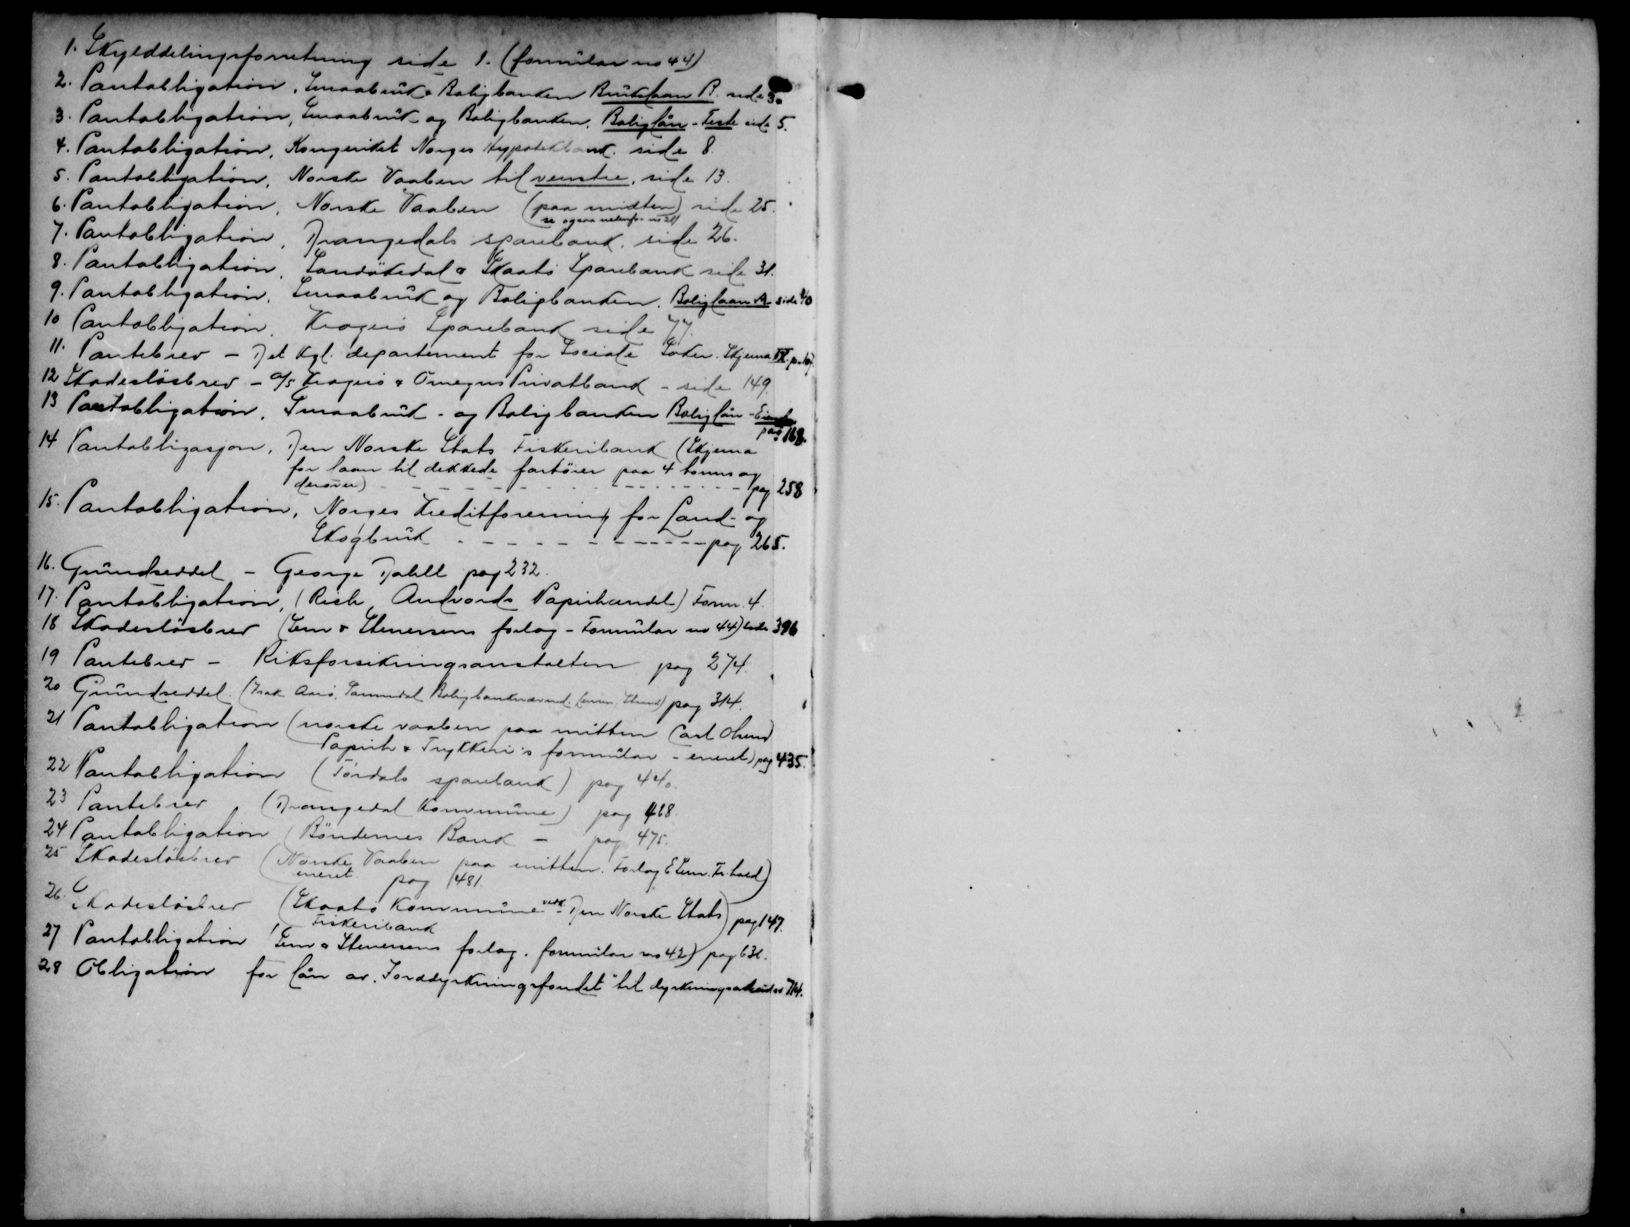 1. Skylddelingsforretning side 1. (formular no 44)
2. Pantobligation, Smaabruk & Boligbanken Brukslaan A. side 3.
3. Pantobligation, Smaabruk og Boligbanken. Boliglån - Feste side 5.
4. Pantobligation, Kongeriket Norges Hypotekbank. side 8.
5. Pantobligation, Norske Vaaben til venstre, side 13.
6. Pantobligation, Norske Vaaben (paa midten) side 25.
se ogsaa nedenfor no 21
7. Pantobligation, Drangedals sparebank. side 26.
8. Pantobligation, Sandökedal & Skaatö Sparebank side 31.
9. Pantobligation, Smaabruk og Boligbanken. Boliglaan A side 40
10 Pantobligation, Kragerö Sparebank side 77.
11. Pantebrev - Det Kgl. departement for Sociale Saker. Skjema IX. p.
12 Skadeslösbrev - A/S Kragerö & Omegns Privatbank - side 149.
13 Pantobligation, Smaabruk - og Boligbanken Boliglån -
pag 168.
14 Pantobligasjon, Den Norske Stats Fiskeribank (Skjema
for laan til dekkede fartöier paa 4 tonns og
derover) - - - - - - - - - - pag 258
15. Pantobligation, Norges Kreditforening for Land- og
Skogbruk - - - - - - - - - pag 265.
16. Grundseddel - George Dahll pag 232.
17. Pantobligation, (Rich. Andvords Papirhandel) Form. 4.
18 Skadeslösbrev (Sem & Stenersens forlag - Formular no 44) side 396
19 Pantebrev - Riksforsikringsanstalten pag 274.
20 Grundseddel. (Isak Aarö, Sannidal Boligbanknævnd.) pag 314.
21 Pantobligation (norske vaaben paa mitten Carl Olsens
Papirh & Trykkeri's formular - eneret) pag 435.
22 Pantobligation (Tördals sparebank) pag 440.
23 Pantebrev (Drangedal Kommune) pag 468.
24 Pantobligation (Böndernes Bank - pag 475.
25 Skadeslösbrev (Norske Vaaben paa mitten. Forlag E Sem. Fr.hald)
eneret pag 481.
26. Skadeslösbrev (Skaatö Kommune vedk. Den Norske Stats
Fiskeribank) pag 147.
27 Pantobligation (Sem & Stenersens forlag. formular no 42) pag 631.
28 Obligation for lån av. Jorddyrkningsfondet til dyrkningsarbeider 714.